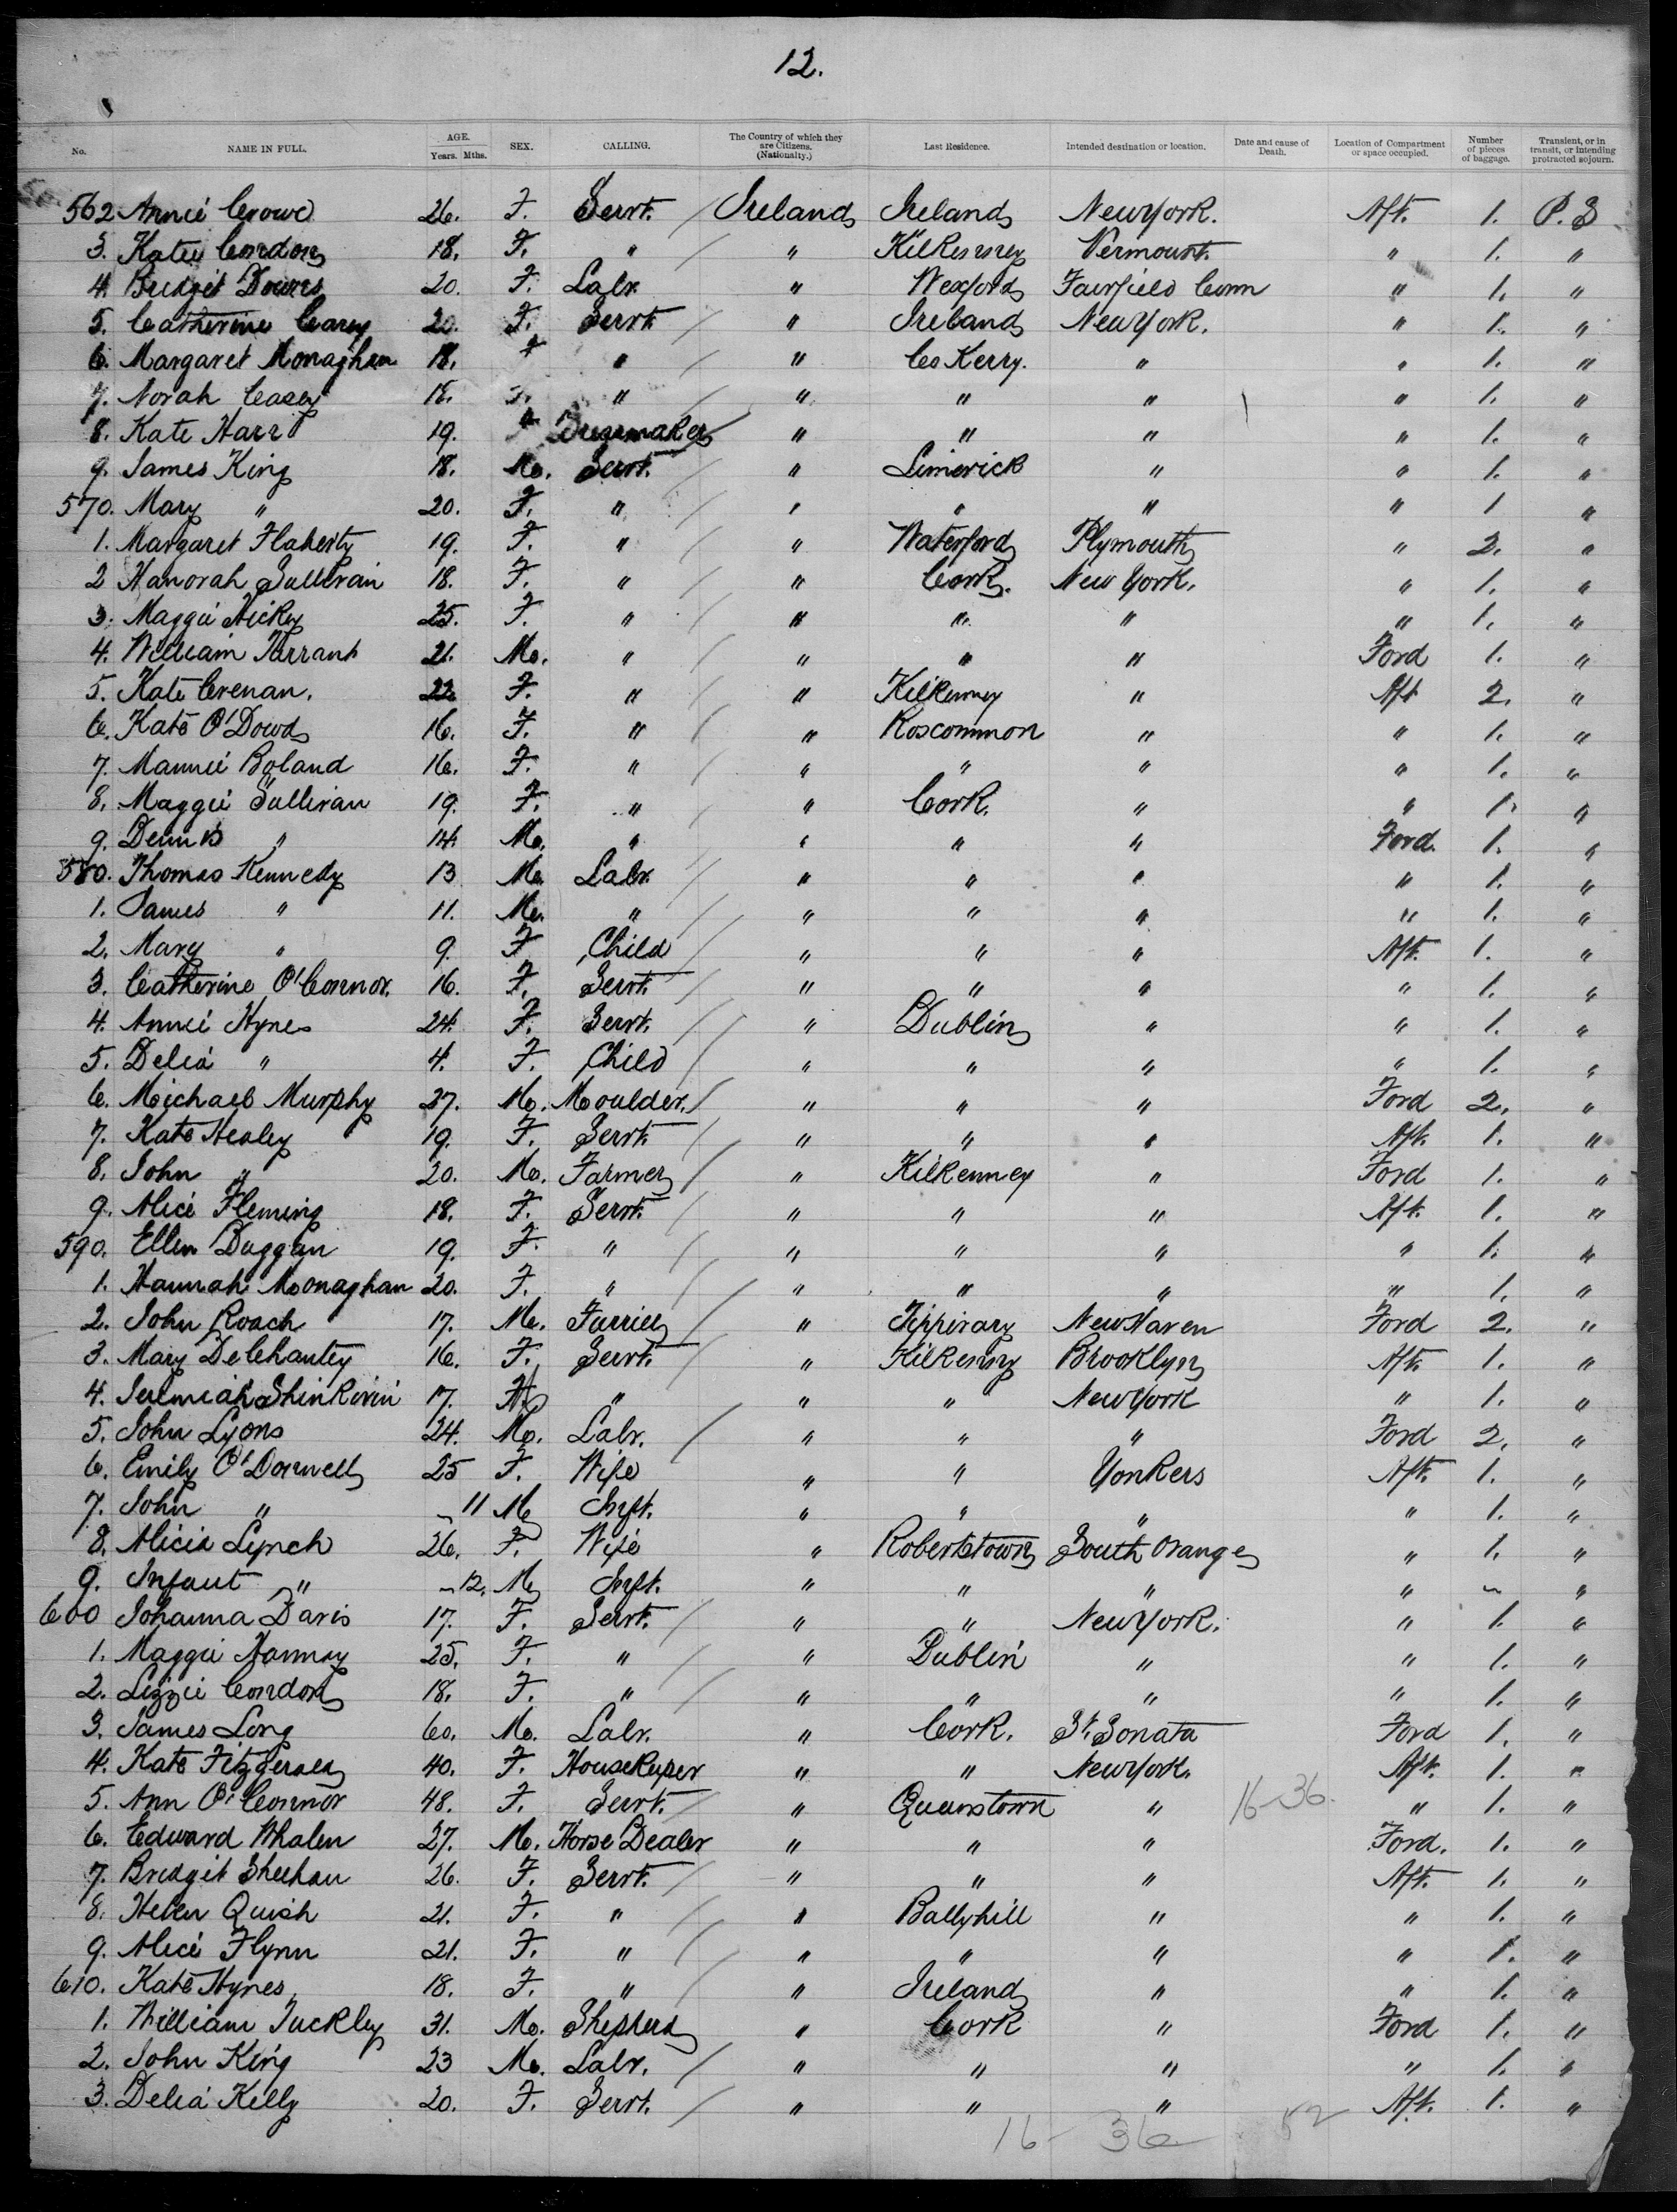 12.
No. NAME IN FULL. AGE. Years. Mths. SEX. CALLING. The Country of which they are Citizens. (Nationalty.) Last Residence. Intended destination or location. Date and cause of Death. Location of Compartment or space occupied. Number of pieces of baggage. Transient, or in transit, or intending protracted sojourn.
562 Annie Crowe 26. F. Servt. Ireland Ireland New York. Aft. 1. P.S
3. Katie Condon 18. F. " " Kilkenney Vermount. " 1. "
4. Bridget Downs 20. F. Labr. " Wexford Fairfield Conn " 1. "
5. Catherine Carey 20. F. Servt. " Ireland New York. " 1. "
6. Margaret Monaghan 18. F " " Co Kerry. " " 1. "
7. Norah Casey 18. F. " " " " " 1. "
8. Kate Harr 19. F Dressmaker " " " " 1. "
9. James King 18. M. Servt. " Limerick " " 1. "
570. Mary " 20. F. " " " " " 1 "
1. Margaret Flaherty 19. F. " " Waterford Plymouth " 2. "
2 Hanorah Sullivain 18. F. " " Cork. New York. " 1. "
3. Maggie Hickey 25. F. " " " " " 1. "
4. William Tarrant 21. M. " " " " Ford 1. "
5. Kate Crenan. 22 F. " " Kilkenney " Aft 2. "
6. Kate O'Dowd 16. F. " " Roscommon " " 1. "
7. Mannie Boland 16. F. " " " " " 1. "
8. Maggie Sullivan 19. F. " " Cork. " " 1. "
9. Dennis " 14. M. " " " " Ford. 1. "
580. Thomas Kennedy 13 M. Labr. " " " " 1. "
1. James " 11. M. " " " " " 1. "
2. Mary " 9. F Child " " " Aft. 1. "
3. Catherine O'Connor. 16. F. Servt. " " " " 1. "
4. Annie Hynes 24. F. Servt. " Dublin " " 1. "
5. Delia " 4. F. Child " " " " 1. "
6. Michael Murphy 27. M. Moulder. " " " Ford 2. "
7. Kate Healey 19. F. Servt. " " " Aft. 1. "
8. John " 20. M. Farmer " Kilkenney " Ford 1. "
9. Alice Fleming 18. F. Servt. " " " Aft. 1. "
590. Ellen Duggan 19. F. " " " " " 1. "
1. Hannah Monaghan 20. F. " " " " " 1. "
2. John Roach 17. M. Farrier " Tippirary New Haven Ford 2. "
3. Mary Delehantey 16. F. Servt. " Kilkenny Brooklyn Aft. 1. "
4. Jeremiah Shinkivin 17. " " " New York " 1. "
5. John Lyons 24. M. Labr. " " " Ford 2. "
6. Emily O'Donnell 25 F. Wife " " Yonkers Aft. 1. "
7. John " 11 M Inft. " " " " 1. "
8. Alicia Lynch 26. F. Wife " Robertstown South Orange " 1. "
9. Infant " 12. M Inft. " " " " - "
600 Johanna Davis 17. F. Servt. " " New York. " 1. "
1. Maggie Hannay 25. F. " " Dublin " " 1. "
2. Lizzie Condon 18. F. " " " " " 1. "
3. James Long 60. M. Labr. " Cork. St. Sonata Ford 1. "
4. Kate Fitzgerald 40. F. Housekeeper " " New York. Aft. 1. "
5. Ann O'Connor 48. F. Servt. " Queenstown " 16-36. " 1. "
6. Edward Whalen 27. M. Horse Dealer " " " Ford. 1. "
7. Bridget Sheehan 26. F. Servt. " " " Aft. 1. "
8. Helen Quish 21. F. " " Ballyhill " " 1. "
9. Alice Flynn 21. F. " " " " " 1. "
610. Kate Hynes 18. F. " " Ireland " " 1. "
1. William Tuckley 31. M. Shepherd " Cork " Ford 1. "
2. John King 23 M. Labr. " " " " 1. "
3. Delia Kelly 20. F. Servt. " " " Aft. 1. "
16-36 52